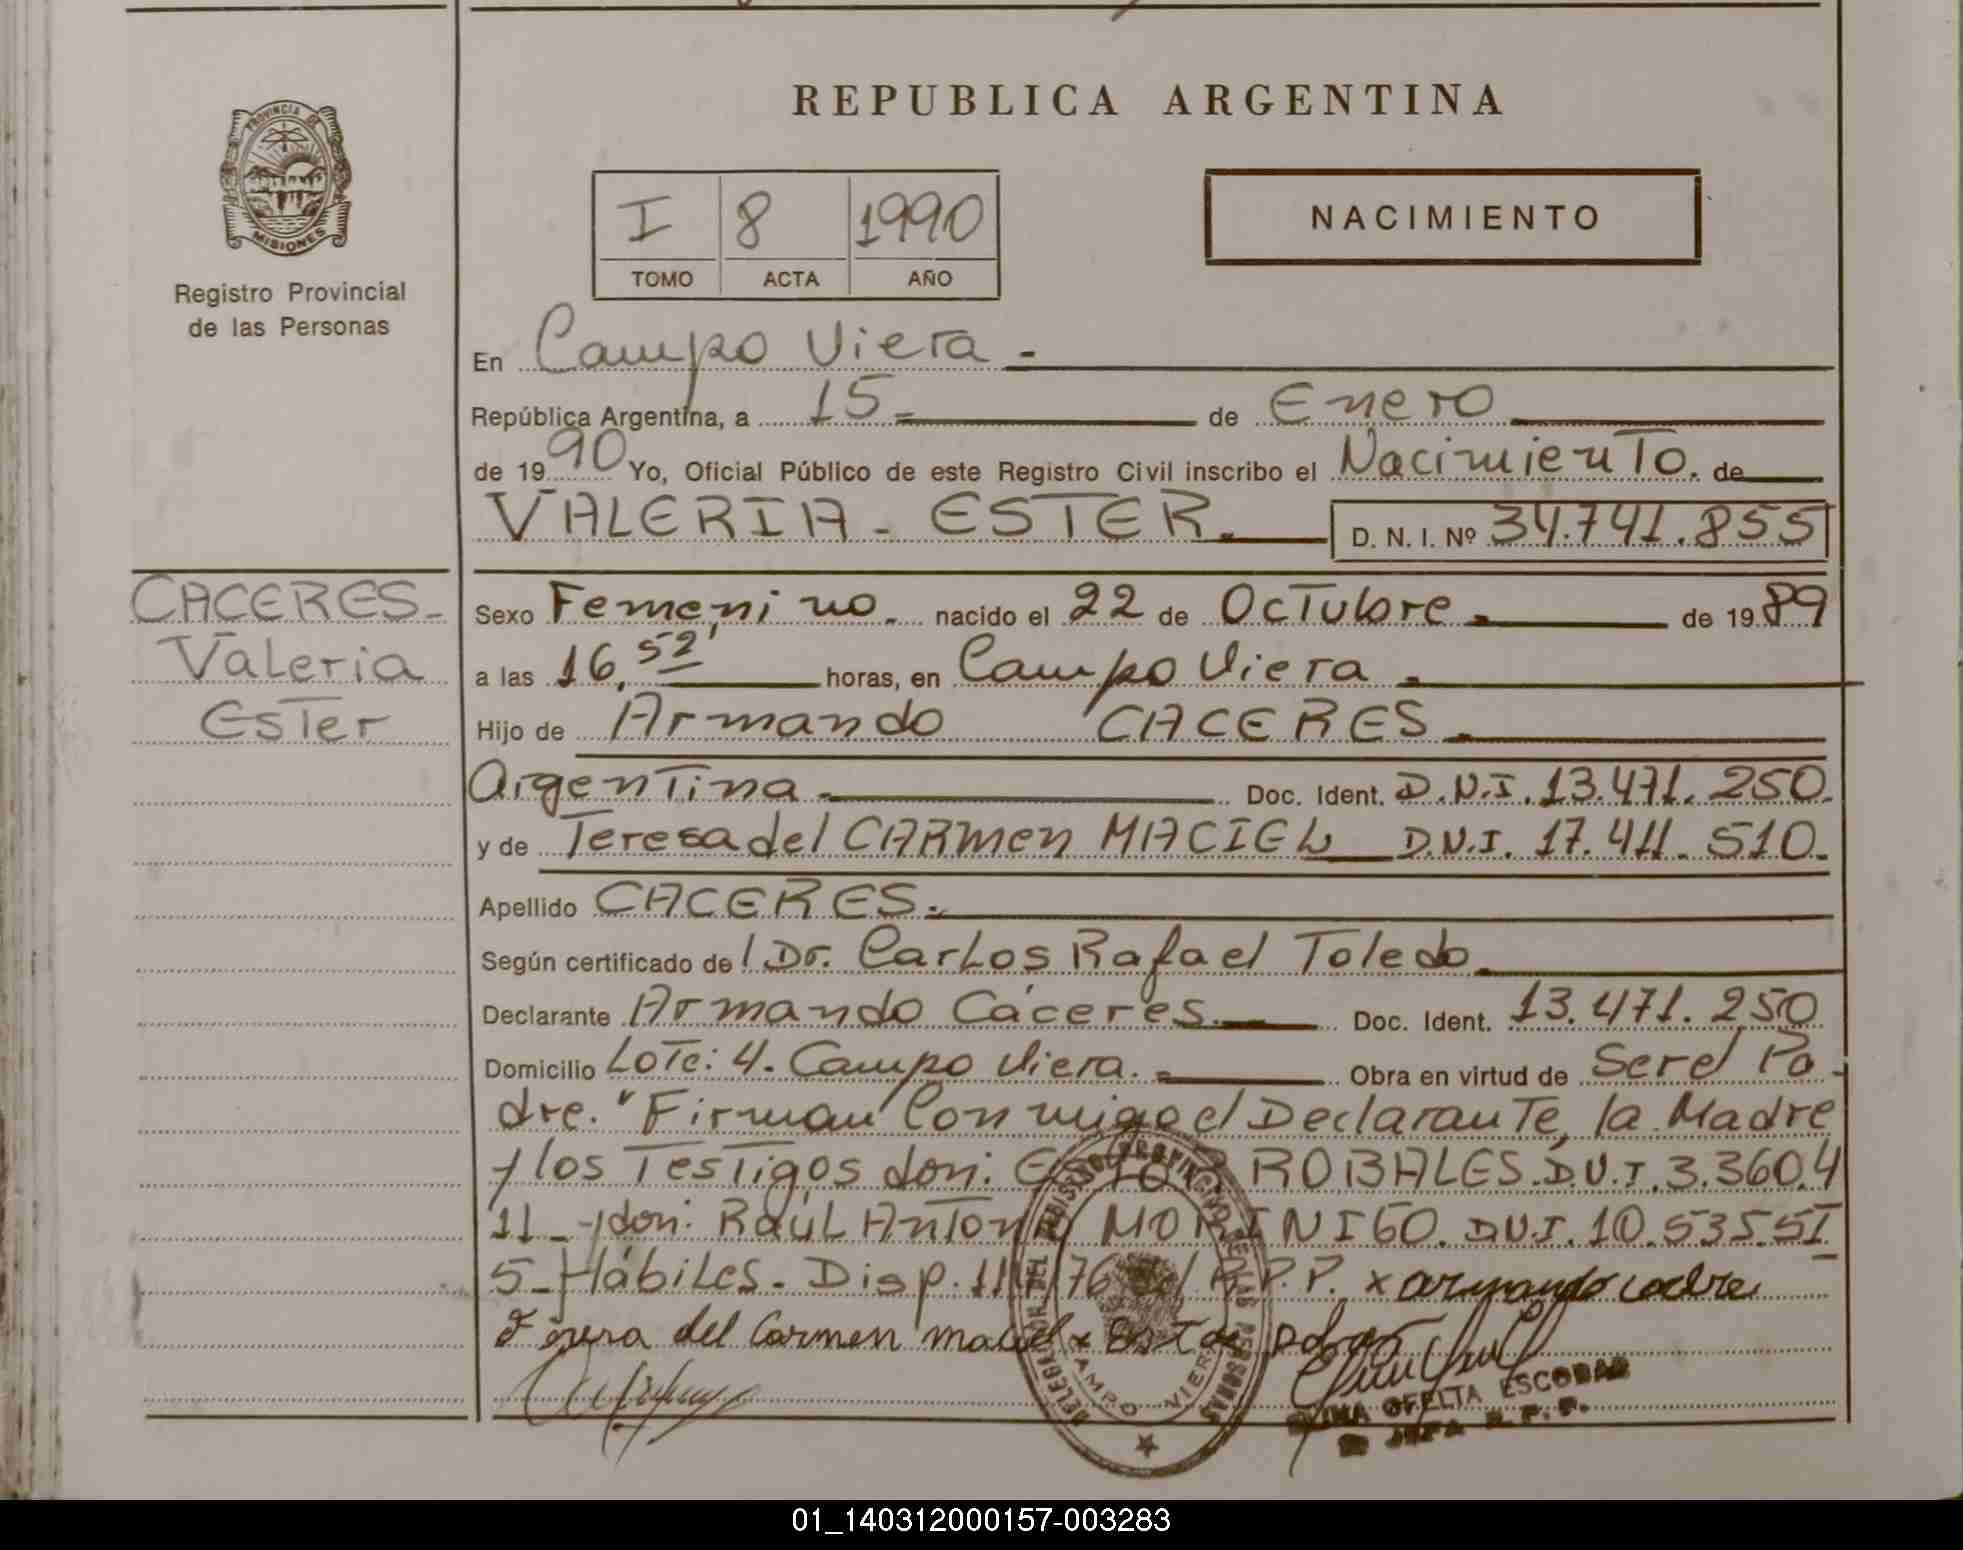 REPUBLICA ARGENTINA
PROVINCIA DE
MISIONES
Registro Provincial
de las Personas
I 8 1990
TOMO ACTA AÑO
NACIMIENTO
En Campo Viera -
República Argentina, a 15 - de Enero
de 1990 Yo, Oficial Público de este Registro Civil inscribo el Nacimiento. de
VALERIA - ESTER. D. N. I. Nº 34.741.855
CACERES -
Valeria
Ester
Sexo Femenino. nacido el 22 de Octubre. de 1989
a las 16,52' horas, en Campo Viera.
Hijo de Armando CACERES.
Argentina. Doc. Ident. D.N.I. 13.471.250.
y de Teresa del CARMen MACIEL D.N.I. 17.411.510.
Apellido CACERES.
Según certificado de l Dr. Carlos Rafael Toledo
Declarante Armando Cáceres. Doc. Ident. 13.471.250
Domicilio Lote: 4. Campo Viera. Obra en virtud de Ser el Pa-
dre. "Firman Conmigo el Declarante, la Madre
y los Testigos don: ROBALES. D.N.I. 3.360.4
11 - y don: RAÚL ANTONIO MORINIGO. D.N.I. 10.535.51
5 - Hábiles. Disp. R.P.P. x armando
del Carmen maciel x
DELEGACION DEL REGISTRO PROVINCIAL DE LAS PERSONAS
CAMPO VIERA
OFELIA ESCOBAR
JEFA R.P.P.
01_140312000157-003283